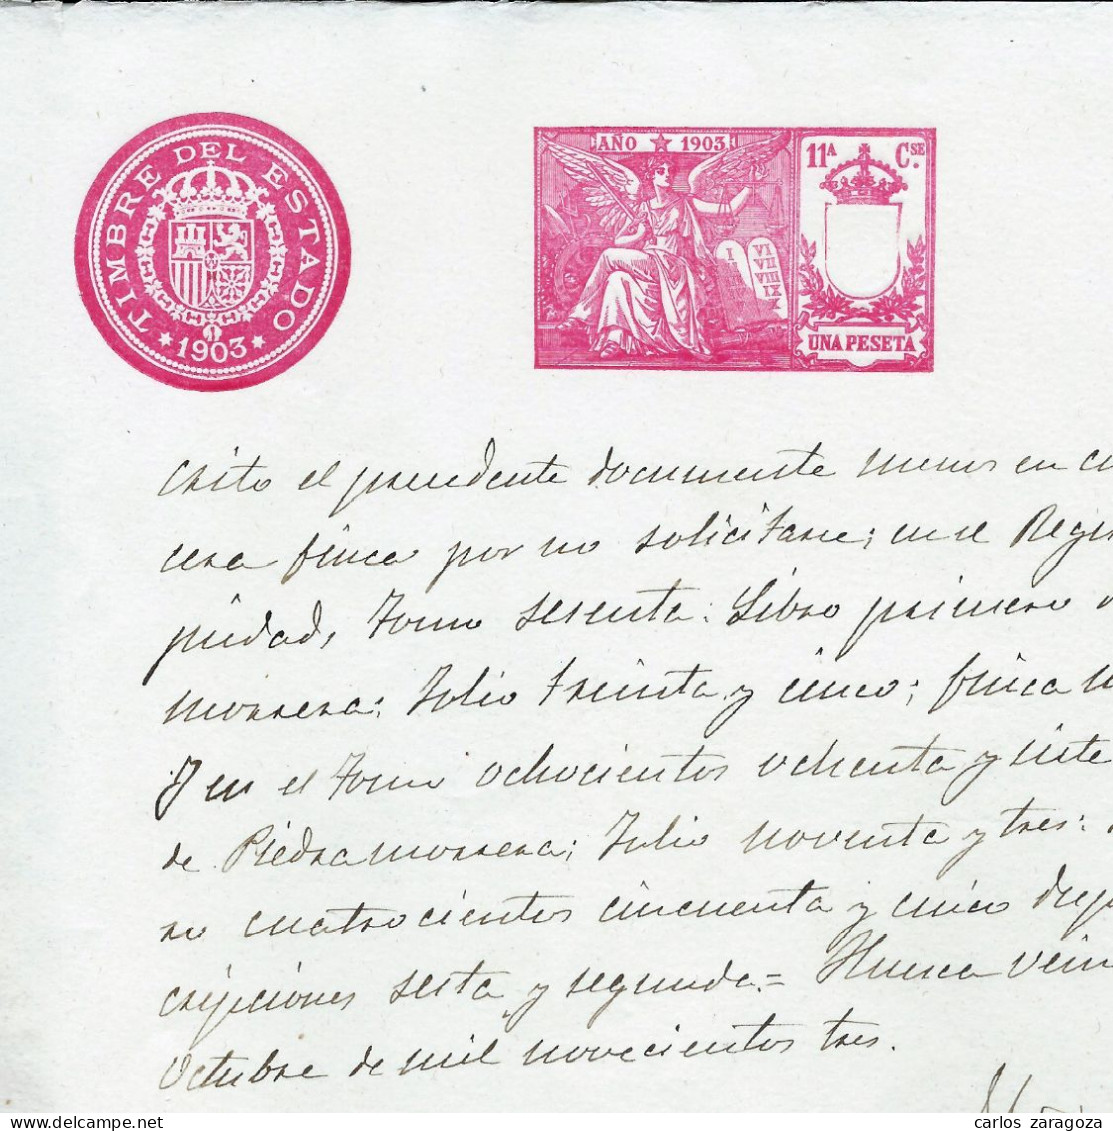 TIMBRE DEL ESTADO
★ 1903 ★
AÑO ★ 1903
11ª Cse.
I VI
VII
VIII
IX
X
UNA PESETA
crito el precedente documento menos en
cera finca por no solicitarse; en el Regis
piedad, Tomo sesenta: Libro primero
morrera: Folio treinta y cinco; finca
Y en el Tomo ochocientos ochenta y siete
de Piedramorrera; Folio noventa y tres:
ro cuatrocientos cincuenta y cinco
cripciones sesta y segunda = Huesca vein
Octubre de mil novecientos tres.
carlos zaragoza